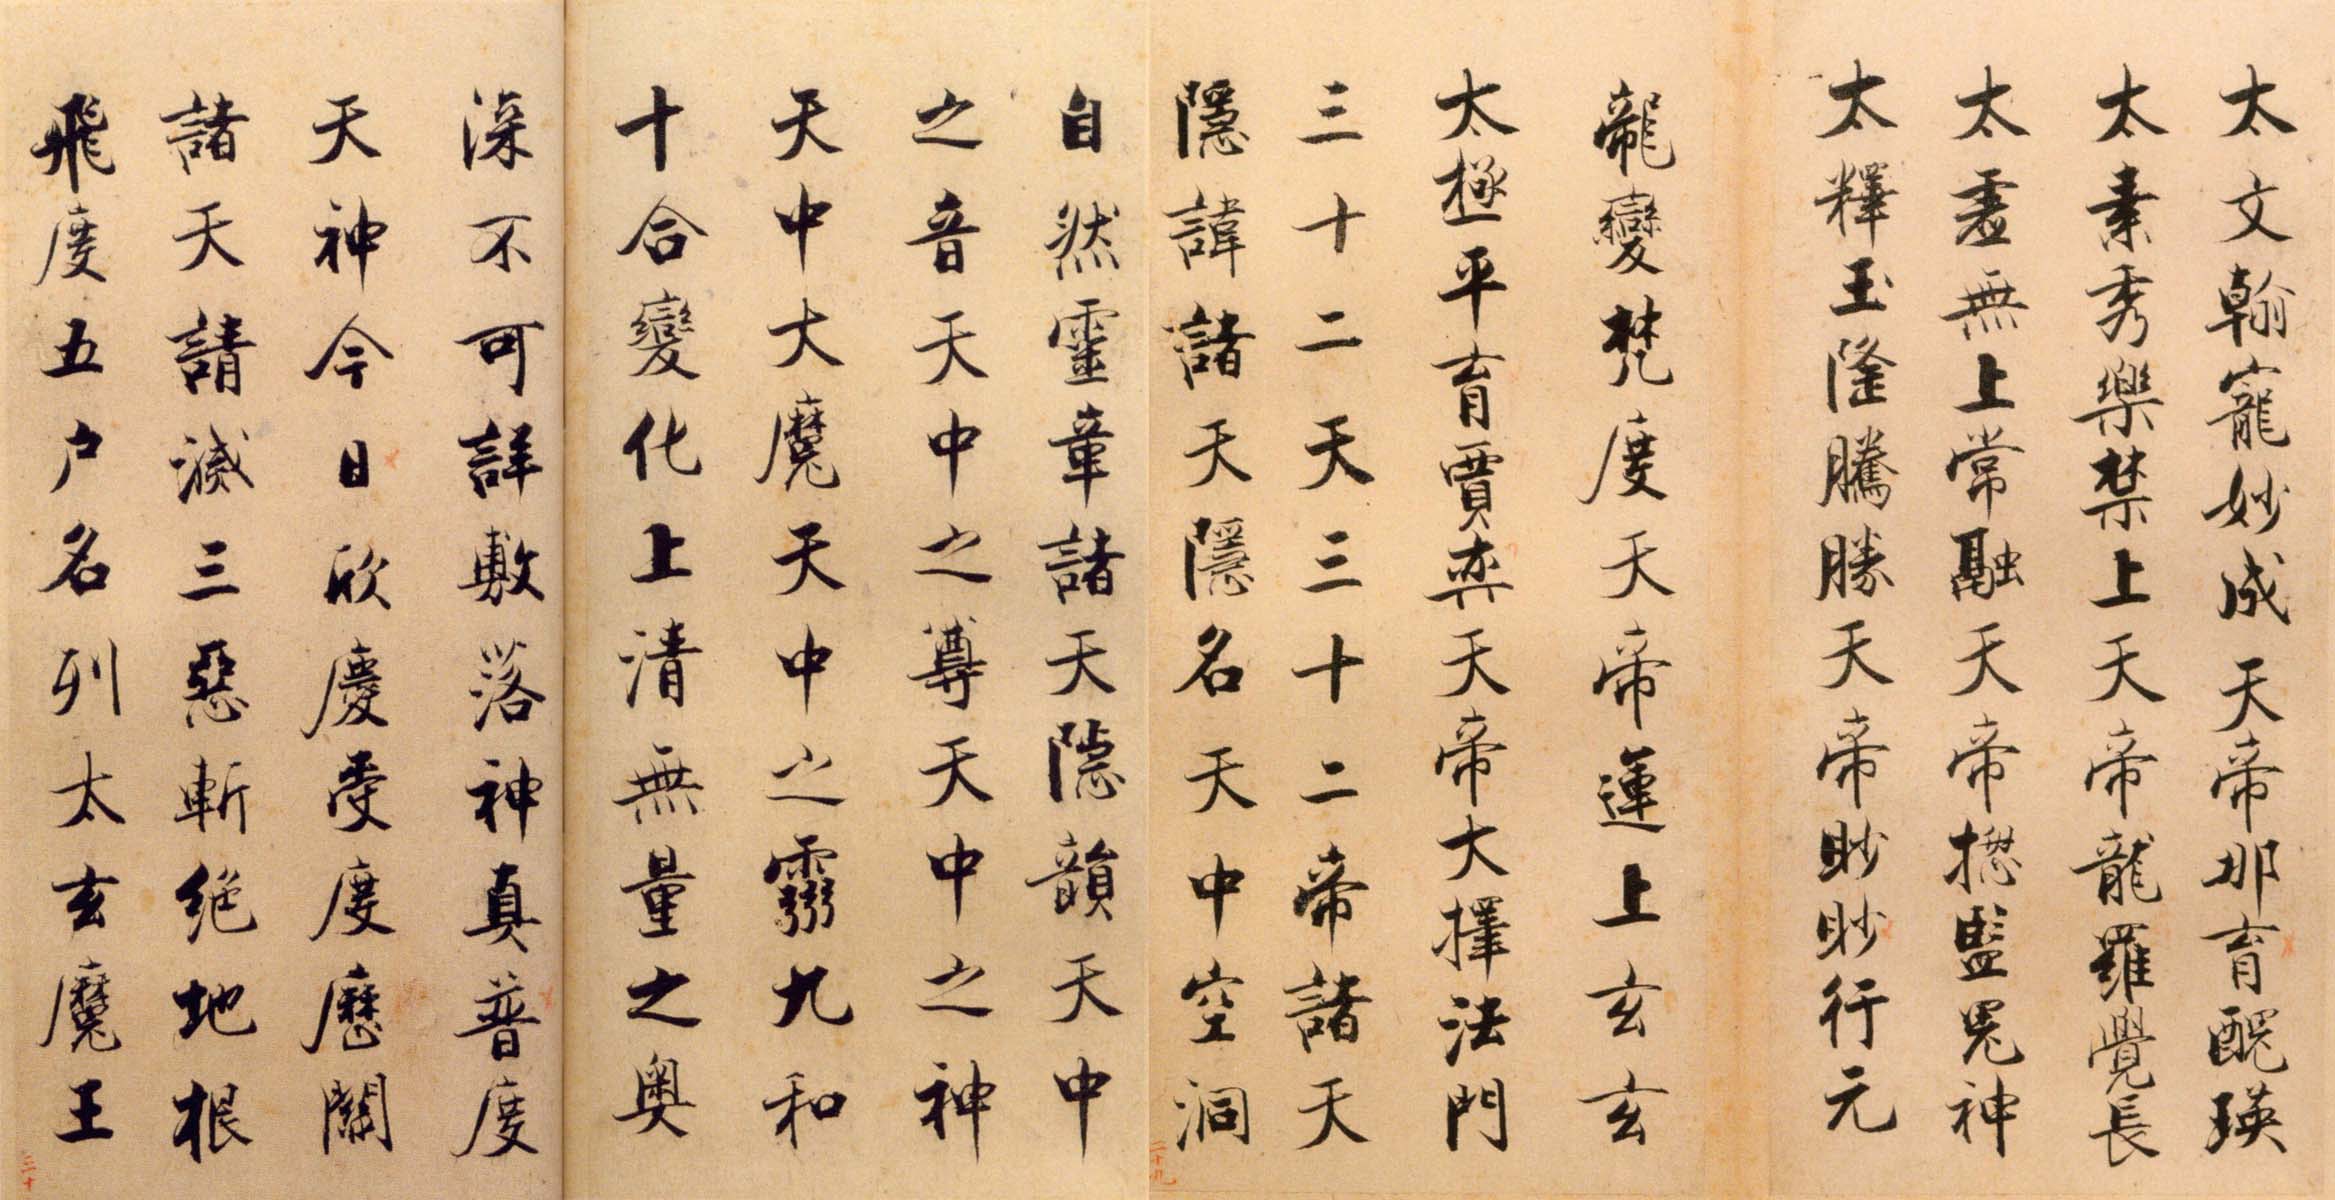 太文翰寵妙成天帝那育醜瑛
太素秀樂禁上天帝龍羅覺長
太虛無上常融天帝摠監鬼神
太釋玉隆騰勝天帝眇眇行元
龍變梵度天帝運上玄玄
太極平育賈奕天帝大擇法門
三十二天三十二帝諸天
隱諱諸天隱名天中空洞
自然靈章諸天隱韻天中
之音天中之尊天中之神
天中大魔天中之靈九和
十合變化上清無量之奧
深不可詳敷落神真普度
天神今日欣慶受度歷關
諸天請滅三惡斬絕地根
飛度五户名列太玄魔王
二十九
三十